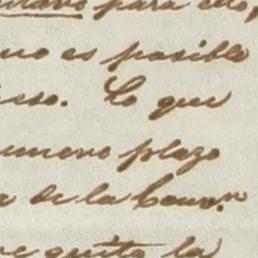 para ello,
no es posible
eso. Lo que
numero plazo
de la Comon.
quito la